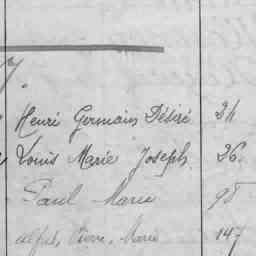 Henri Germain Désiré 24
Louis Marie Joseph. 26
Paul Marie 98
Pierre, Marie 147